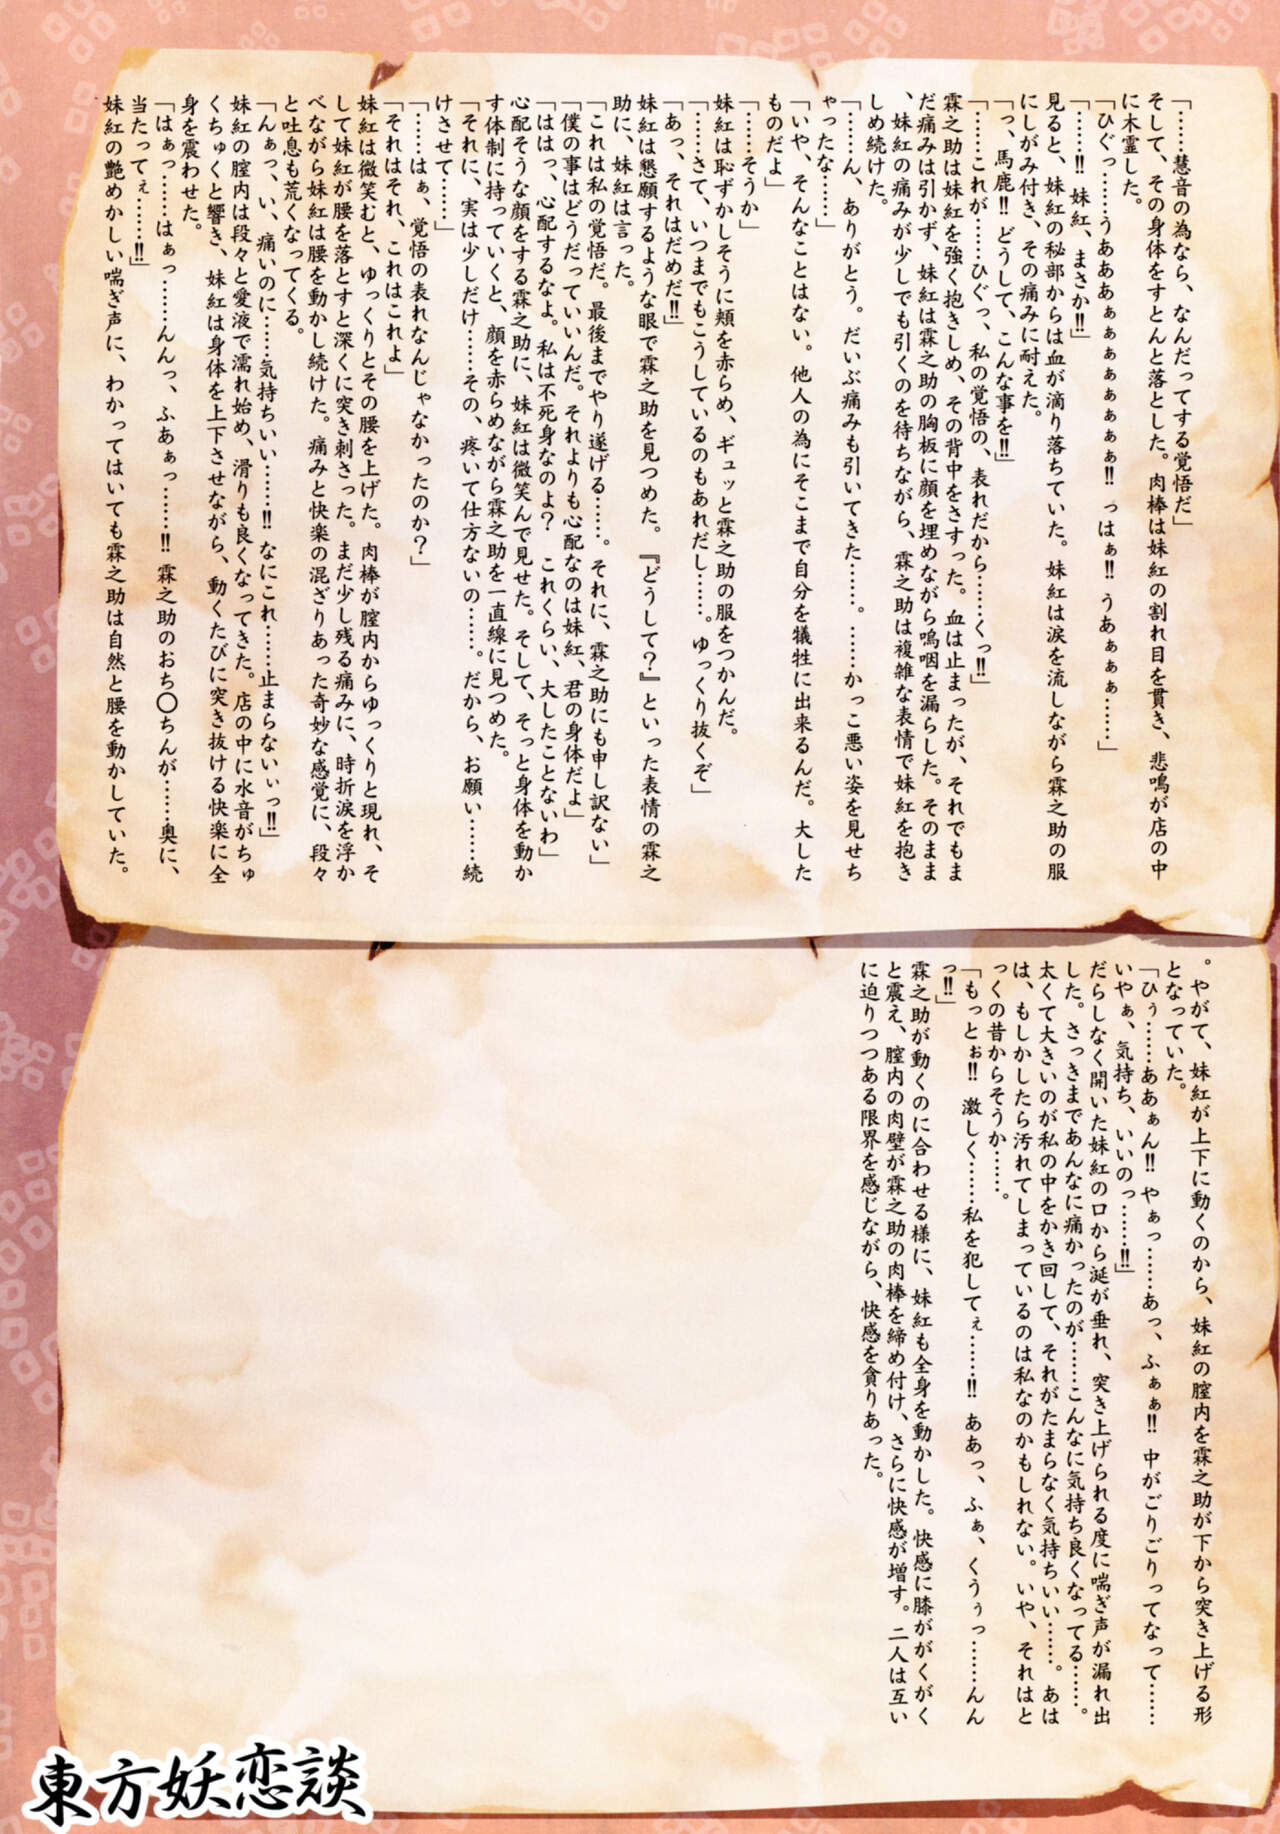 「……慧音の為なら、なんだってする覚悟だ」
そして、その身体をすとんと落とした。肉棒は妹紅の割れ目を貫き、悲鳴が店の中
に木霊した。
「ひぐっ……うああああぁぁぁぁぁぁぁ!! っはぁ!! うあぁぁぁ……」
「……!! 妹紅、まさか!!」
見ると、妹紅の秘部からは血が滴り落ちていた。妹紅は涙を流しながら霖之助の服
にしがみ付き、その痛みに耐えた。
「っ、馬鹿!! どうして、こんな事を!!」
「……これが……ひぐっ、私の覚悟の、表れだから……くっ!!」
霖之助は妹紅を強く抱きしめ、その背中をさすった。血は止まったが、それでもま
だ痛みは引かず、妹紅は霖之助の胸板に顔を埋めながら嗚咽を漏らした。そのまま
、妹紅の痛みが少しでも引くのを待ちながら、霖之助は複雑な表情で妹紅を抱き
しめ続けた。
「……ん、ありがとう。だいぶ痛みも引いてきた……。……かっこ悪い姿を見せち
ゃったな……」
「いや、そんなことはない。他人の為にそこまで自分を犠牲に出来るんだ。大した
ものだよ」
「……そうか」
妹紅は恥ずかしそうに頬を赤らめ、ギュッと霖之助の服をつかんだ。
「……さて、いつまでもこうしているのもあれだし……。ゆっくり抜くぞ」
「あっ、それはだめだ!!」
妹紅は懇願するような眼で霖之助を見つめた。『どうして?』といった表情の霖之
助に、妹紅は言った。
「これは私の覚悟だ。最後までやり遂げる……。それに、霖之助にも申し訳ない」
「僕の事はどうだっていいんだ。それよりも心配なのは妹紅、君の身体だよ」
「ははっ、心配するなよ。私は不死身なのよ? これくらい、大したことないわ」
心配そうな顔をする霖之助に、妹紅は微笑んで見せた。そして、そっと身体を動か
す体制に持っていくと、顔を赤らめながら霖之助を一直線に見つめた。
「それに、実は少しだけ……その、疼いて仕方ないの……。だから、お願い……続
けさせて……」
「……はぁ、覚悟の表れなんじゃなかったのか?」
「それはそれ、これはこれよ」
妹紅は微笑むと、ゆっくりとその腰を上げた。肉棒が膣内からゆっくりと現れ、そ
して妹紅が腰を落とすと深くに突き刺さった。まだ少し残る痛みに、時折涙を浮か
べながら妹紅は腰を動かし続けた。痛みと快楽の混ざりあった奇妙な感覚に、段々
と吐息も荒くなってくる。
「んぁっ、い、痛いのに……気持ちいい……!! なにこれ……止まらないぃっ!!」
妹紅の膣内は段々と愛液で濡れ始め、滑りも良くなってきた。店の中に水音がちゅ
くちゅくと響き、妹紅は身体を上下させながら、動くたびに突き抜ける快楽に全
身を震わせた。
「はぁっ……はぁっ……んんっ、ふあぁっ……!! 霖之助のおち〇ちんが……奥に、
当たってぇ……!!」
妹紅の艶めかしい喘ぎ声に、わかってはいても霖之助は自然と腰を動かしていた。
。やがて、妹紅が上下に動くのから、妹紅の膣内を霖之助が下から突き上げる形
となっていた。
「ひぅ……ああぁん!! やぁっ……あっ、ふぁぁ!! 中がごりごりってなって……
いやぁ、気持ち、いいのっ……!!」
だらしなく開いた妹紅の口から涎が垂れ、突き上げられる度に喘ぎ声が漏れ出
した。さっきまであんなに痛かったのが……こんなに気持ち良くなってる……。
太くて大きいのが私の中をかき回して、それがたまらなく気持ちいい……。あは
は、もしかしたら汚れてしまっているのは私なのかもしれない。いや、それはと
っくの昔からそうか……。
「もっとぉ!! 激しく……私を犯してぇ……!! ああっ、ふぁ、くうぅっ……んん
っ!!」
霖之助が動くのに合わせる様に、妹紅も全身を動かした。快感に膝ががくがく
と震え、膣内の肉壁が霖之助の肉棒を締め付け、さらに快感が増す。二人は互い
に迫りつつある限界を感じながら、快感を貪りあった。
東方妖恋談